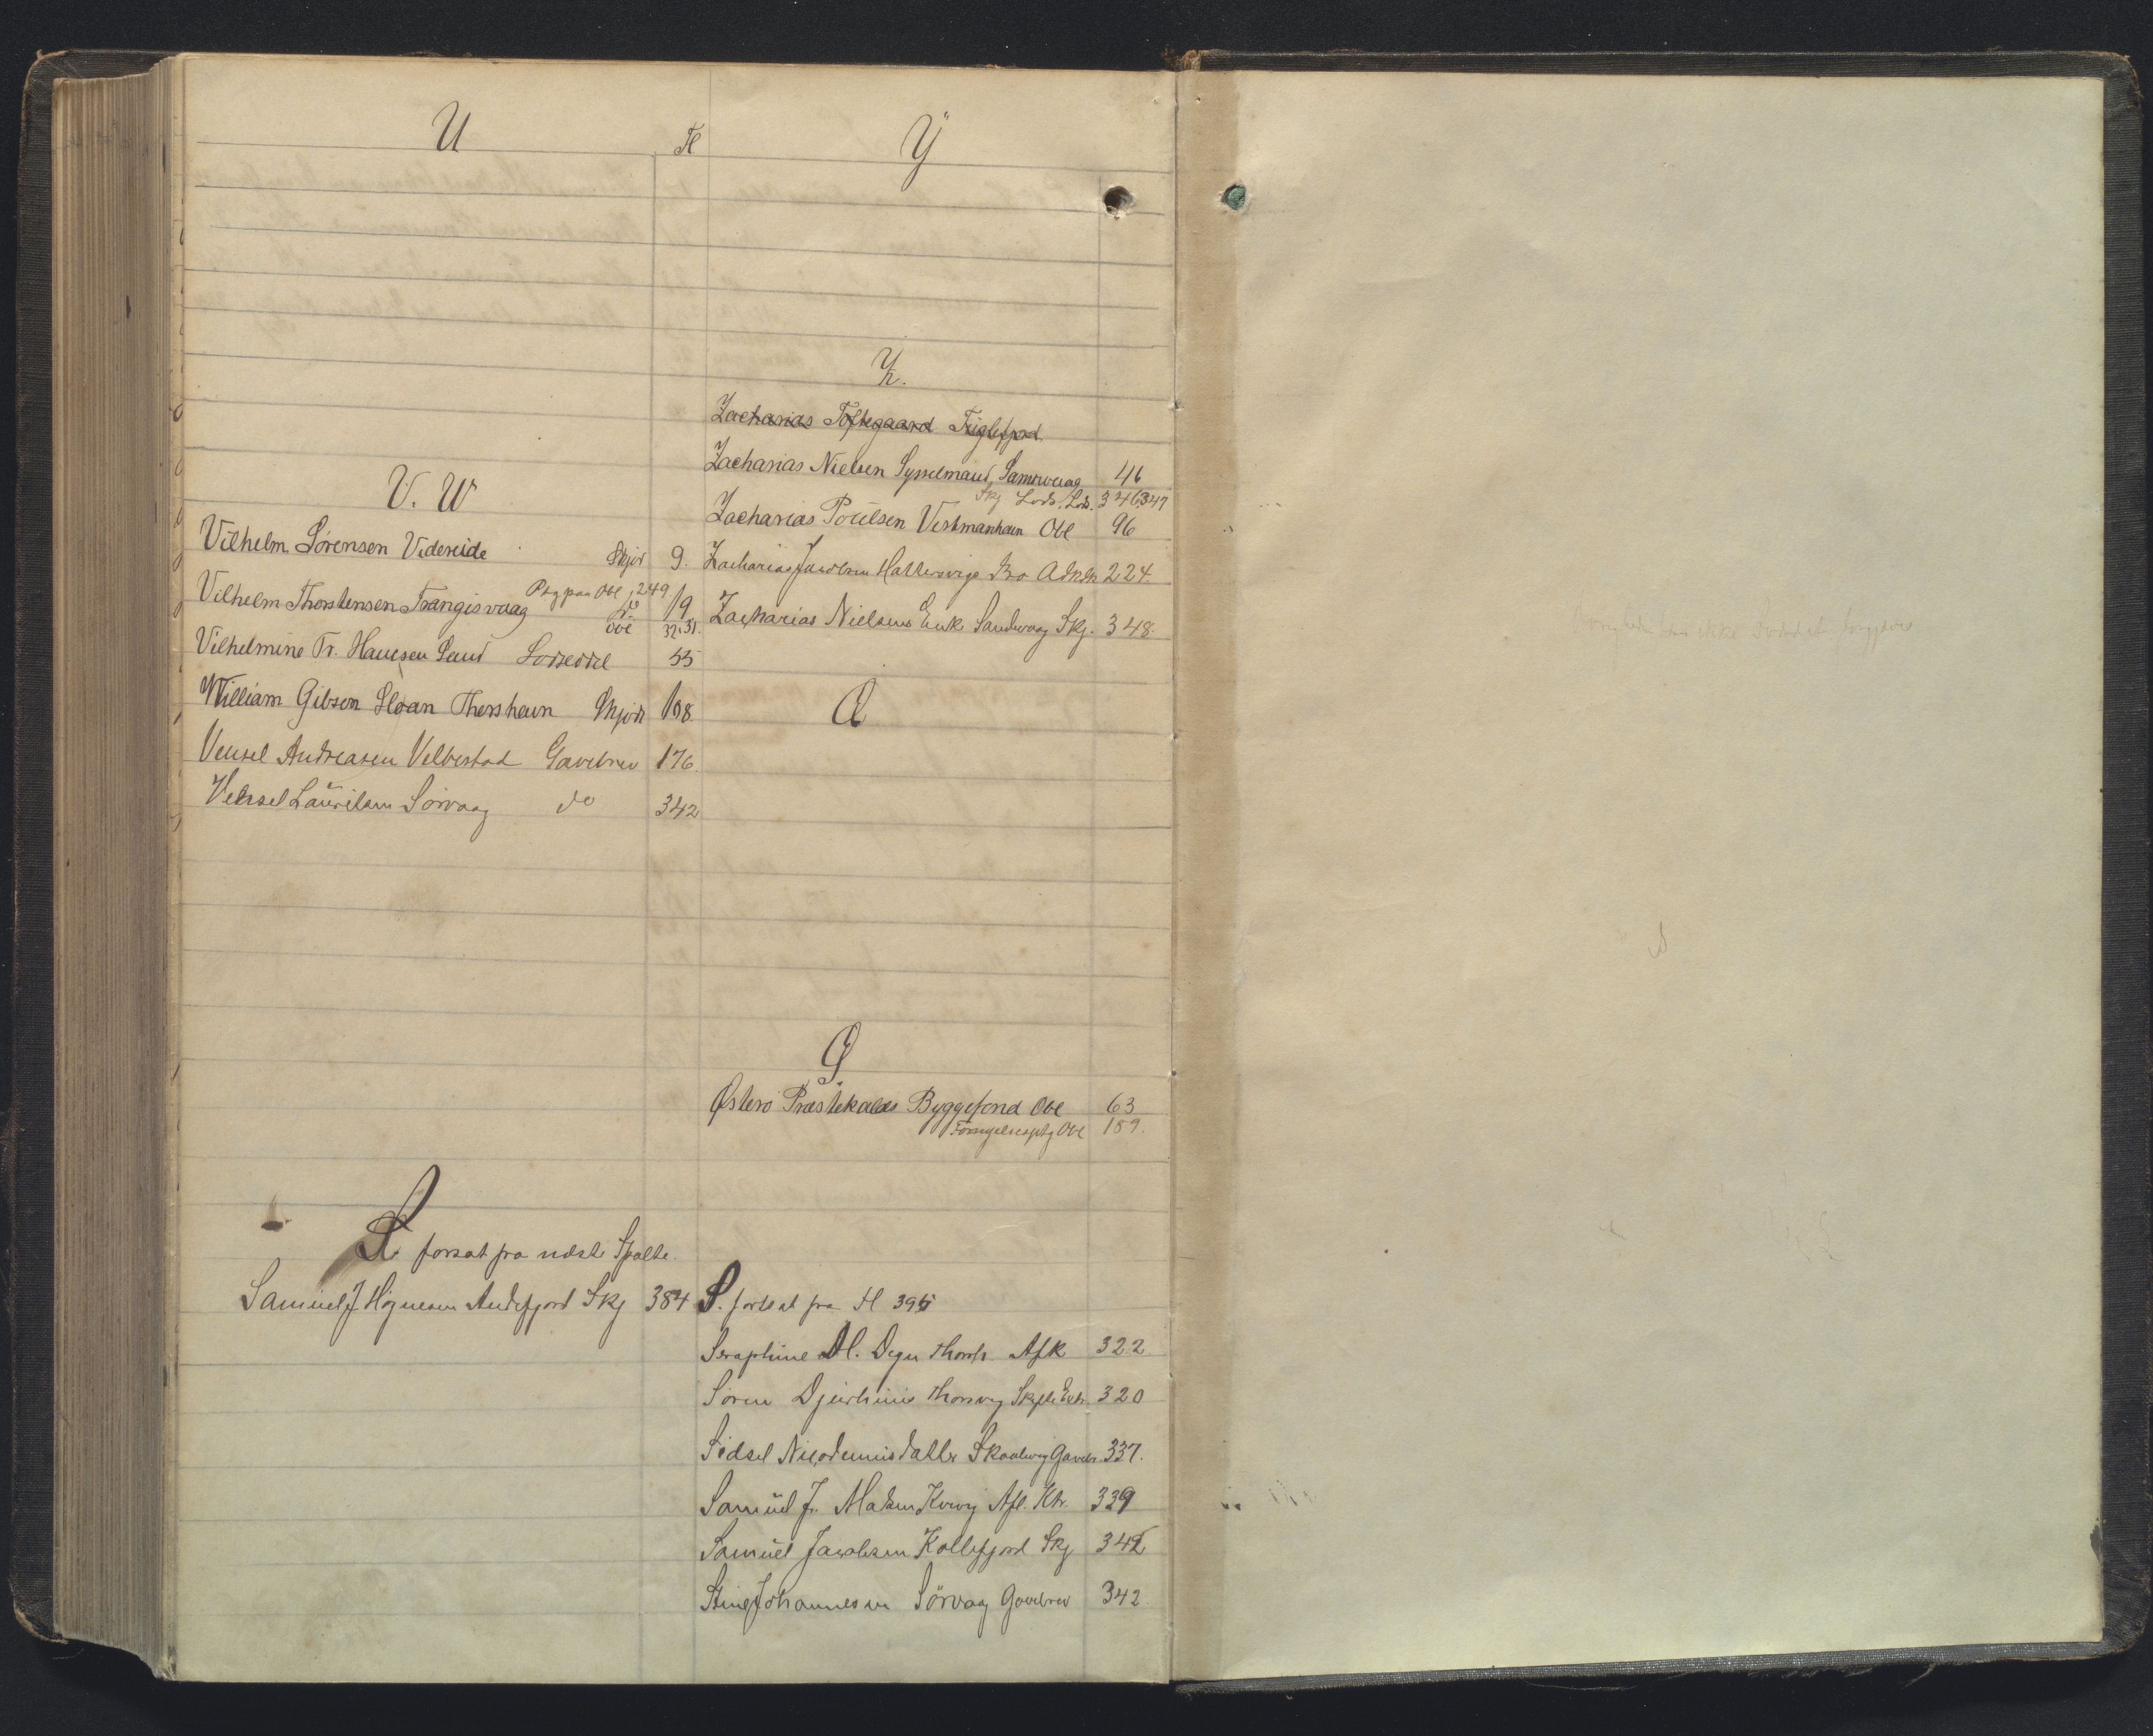 U
Fl
V. W
Vilhelm Sørensen Videreide Skjød 9.
Ptg paa Obl 249
Vilhelm Thorstensen Trangisvaag do 19
Obl 32.31.
Vilhelmine Fr. Hansen Sand Lodseddel 55
William Gibson Sloan Thorshavn Skjøde 108
Vensel Andreasen Velbestad Gavebrev 176.
Vensel Lauritsen Sørvaag do 342
S. forsat fra næste Spalte.
Samuel J Høgnesen Andefjord Skj 384
Ÿ
Z.
Zacharias Toftegaard Fuglefjord
Zacharias Nielsen Sysselmand, Sandevaag 46
Skj Lods. Lods. 346,347
Zacharias Poulsen Vestmanhavn Obl 96
Zacharias Jacobsen Hattervigs Bro Adkdk 224.
Zacharias Nielsens Enke Sandevaag Skj. 348.
Æ
Ø
Østerø Præstekalds Byggefond Obl 63
Fornyelsesptg Obl 189.
S. fortsat fra Fl 395
Seraphine M. Degn Thorsh. Afk 322
Søren Djurhuus Thorsvig Skifte Extr. 320
Sidsel Nicodemusdatter Skaalevig Gavebr. 337.
Samuel J. Madsen Kvivig Afl. Ktr. 339
Samuel Jacobsen Kollefjord Skj 342
Stine Johannesen Sörvaag Gavebrev 342